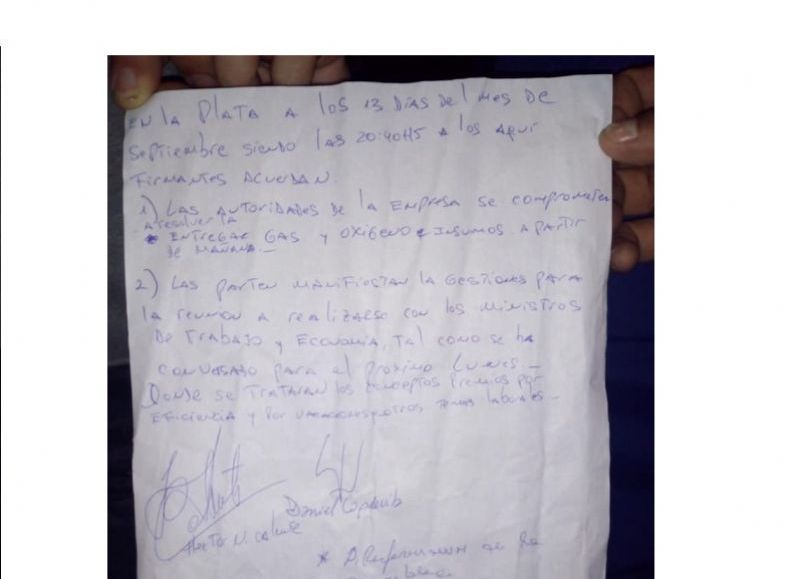 EN LA PLATA A LOS 13 DIAS DEL MES DE
SEPTIEMBRE SIENDO LAS 20:40HS A LOS AQUI
FIRMANTES ACUERDAN.
1) LAS AUTORIDADES DE LA EMPRESA SE COMPROMETEN
A RESOLVER LA
ENTREGAR GAS Y OXIGENO E INSUMOS A PARTIR
DE MAÑANA.-
2) LAS PARTEN MANIFIESTAN LA GESTIONES PARA
LA REUNION A REALIZARSE CON LOS MINISTROS
DE TRABAJO Y ECONOMIA, TAL COMO SE HA
CONVERSADO PARA EL PROXIMO LUNES.-
DONDE SE TRATARAN LOS CONCEPTOS PREMIOS POR
EFICIENCIA Y POR VACACIONES Y OTROS TEMAS LABORALES-
Hector N.
Daniel
* A Referendum de la